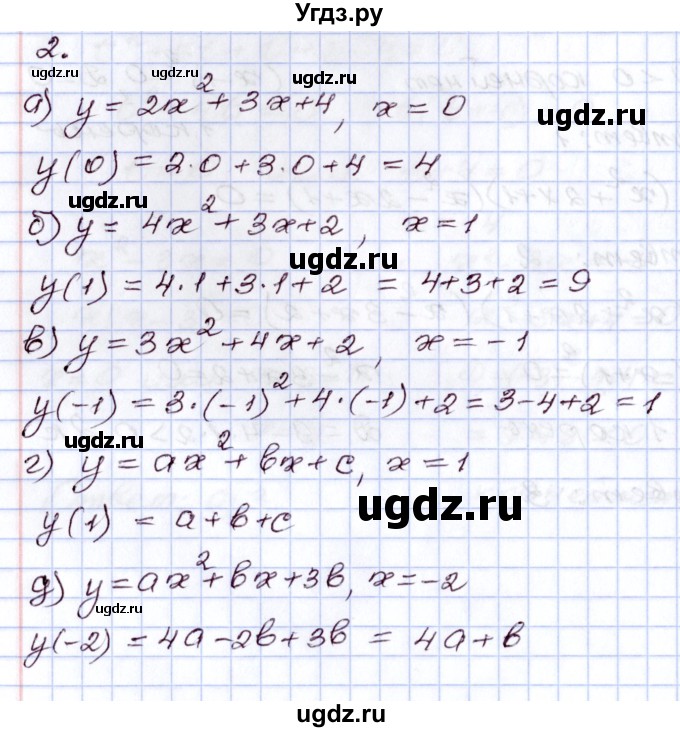 Угдз.ру
2.
а) y = 2x² + 3x + 4, x = 0
y(0) = 2·0 + 3·0 + 4 = 4
б) y = 4x² + 3x + 2, x = 1
y(1) = 4·1 + 3·1 + 2 = 4 + 3 + 2 = 9
в) y = 3x² + 4x + 2, x = -1
y(-1) = 3·(-1)² + 4·(-1) + 2 = 3 - 4 + 2 = 1
г) y = ax² + bx + c, x = 1
y(1) = a + b + c
д) y = ax² + bx + 3b, x = -2
y(-2) = 4a - 2b + 3b = 4a + b
ugdz.ru
ugdz.ru
ugdz.ru
ugdz.ru
ugdz.ru
ugdz.ru
ugdz.ru
ugdz.ru
ugdz.ru
ugdz.ru
ugdz.ru
ugdz.ru